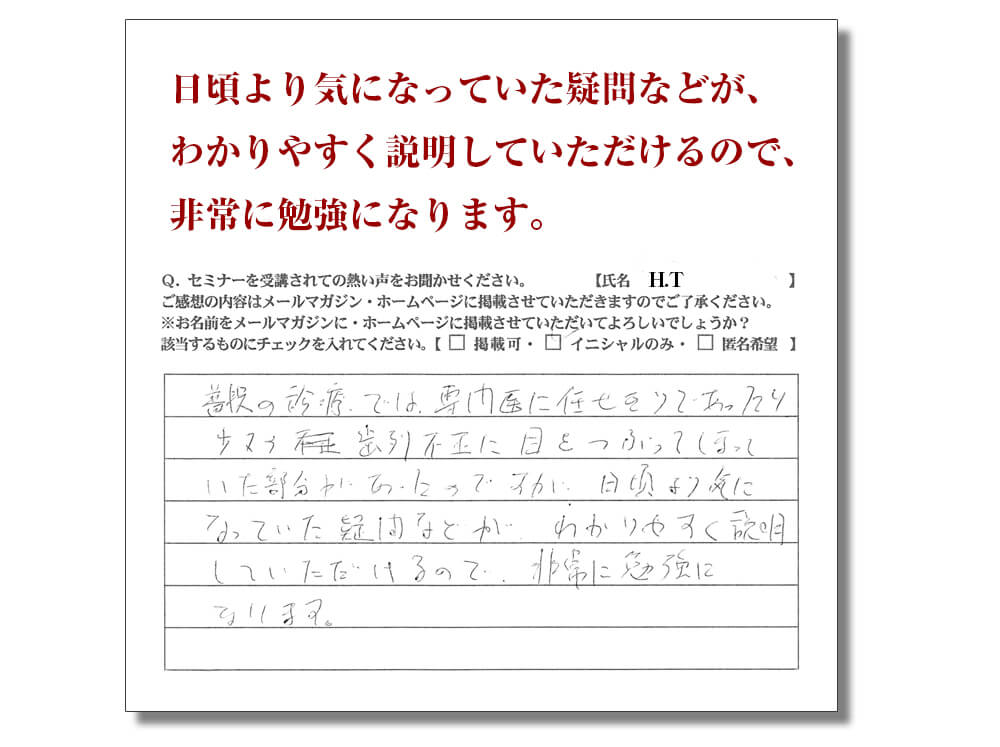 日頃より気になっていた疑問などが、
わかりやすく説明していただけるので、
非常に勉強になります。
Q. セミナーを受講されての熱い声をお聞かせください。 【氏名 H.T 】
ご感想の内容はメールマガジン・ホームページに掲載させていただきますのでご了承ください。
※お名前をメールマガジンに・ホームページに掲載させていただいてよろしいでしょうか？
該当するものにチェックを入れてください。【 □ 掲載可・ □ イニシャルのみ・ □ 匿名希望 】
普段の診療では、専門医に任せきりであったり
歯列不正に目をつぶってしまって
いた部分があったのですが、日頃より気に
なっていた疑問などが、わかりやすく説明
していただけるので、非常に勉強に
なります。